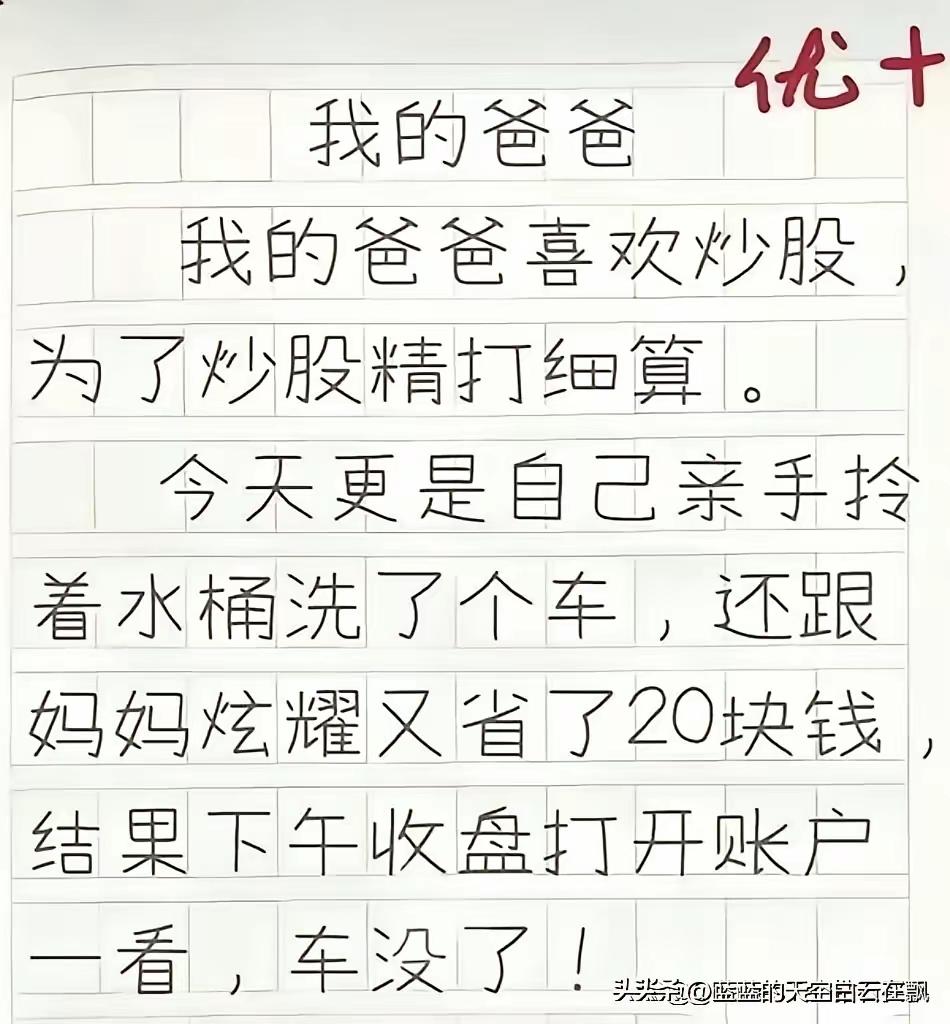 优+
我的爸爸
我的爸爸喜欢炒股，
为了炒股精打细算。
今天更是自己亲手拎
着水桶洗了个车，还跟
妈妈炫耀又省了20块钱，
结果下午收盘打开账户
一看，车没了！
头条@蓝蓝的天空白云在飘